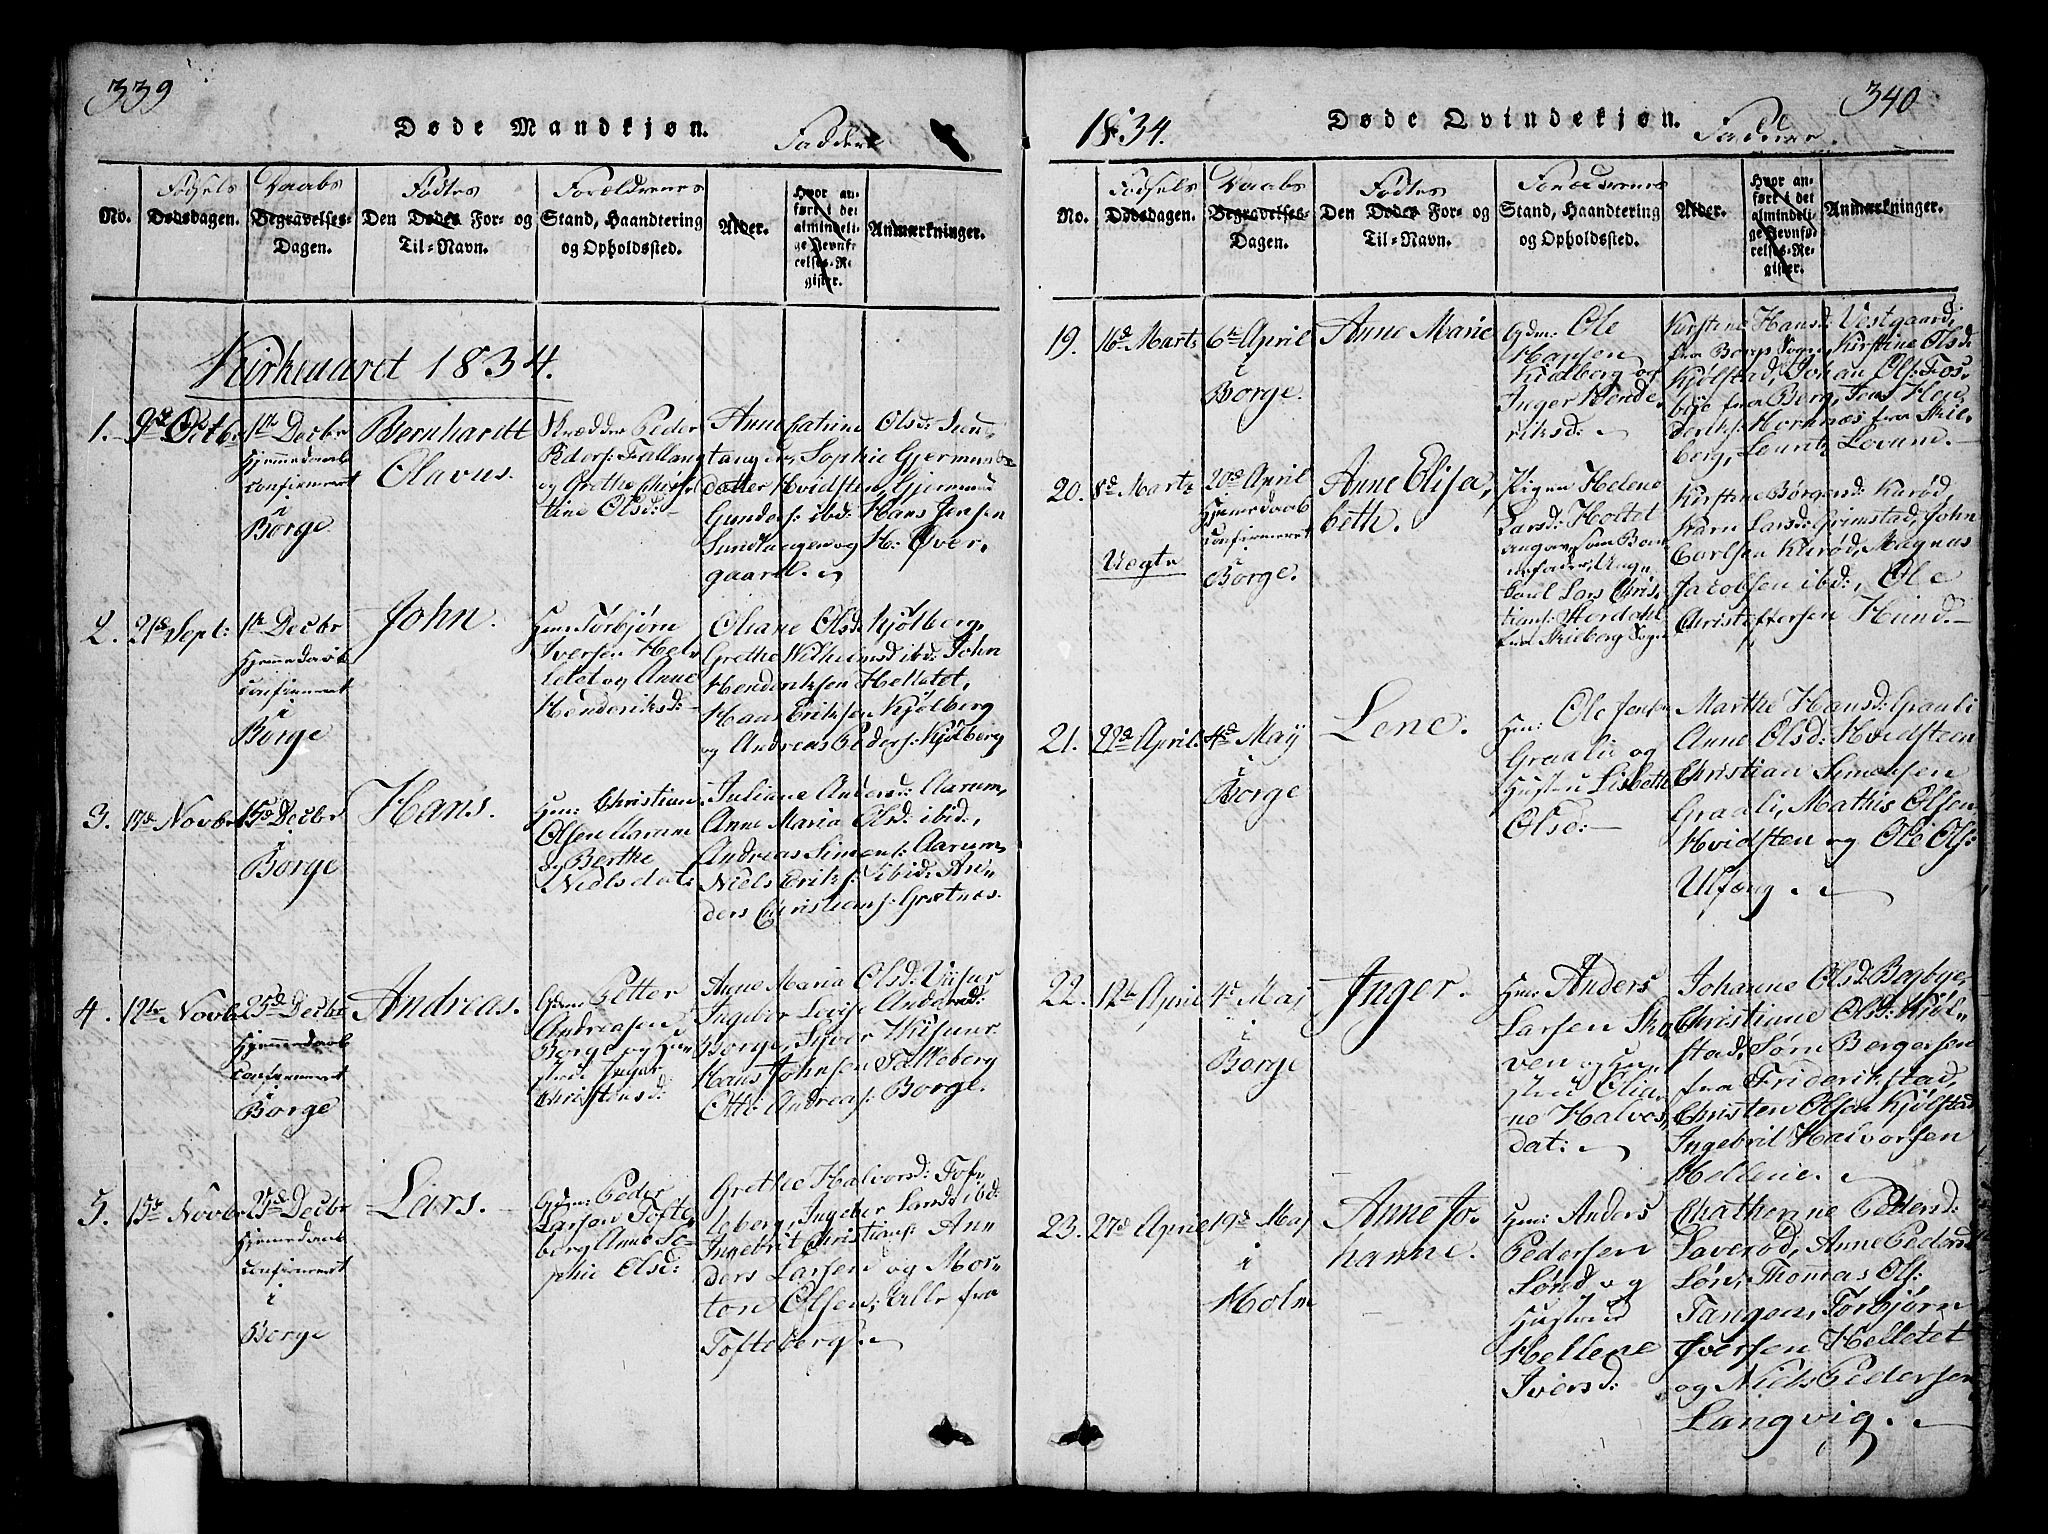 339
Døde Mandkjøn.
Faddere
No.
Fødsels
Dødsdagen.
Daabs
Begravelses-
Dagen.
Fødtes
Den Dødes For- og
Til-Navn.
Forældrenes
Stand, Haandtering
og Opholdssted.
Alder.
Hvor an-
ført i det
almindeli-
ge Jevnfø-
relses-Re-
gister.
Anmærkninger.
Kirkeaaret 1834.
1.
Octbr
1ste Decbr
Hjemmedaab
confirmeret
i
Borge.
Bernhardt
Olavus.
Skrædder Peder
Peders: Tallang
og Grethe Chris
tine Olsd:
Anne Catrine Olsd: Sund
tangen, Sophie Gjermunds
datter Hvidsten, Gjermund
Gunders: ibd: Hans Jensen
Sundtangen og H: Over
gaard.
2.
21de Sept:
1ste Decbr
Hjemmedaab
confirmeret
i
Borge
John.
Torbjørn
Iversen Hel
letet og Anne
Henderiksd:
Oliane Olsd: Kjølberg,
Grethe Wilhelmsd: ibd: John
Henderiksen Helletet,
Hans Eriksen Kjølberg
og Andreas Peders: Kjølberg
3.
17de Novbr
15de Decbr
i
Borge
Hans.
Hm: Christian
Olsen Aarum
og Berthe
Nielsdat:
Juliane Andersd: Aarum,
Anne Maria Olsd: ibid:,
Andreas Simens: Aarum,
Niels Eriks: ibid: An
ders Christians: Grætnes.
4.
12te Novbr
25de Decbr
Hjemmedaab
confirmeret
i
Borge
Andreas.
Gdm: Petter
Andreasen
Borge og Hu
strue Inger
Christensd:
Anne Maria Olsd:
Ingeber Lovise Andersd:
Borge, Siver
Hans Johnsen Falkeberg
Otto Andreas: Borge.
5.
15de Novbr
25de Decbr
Hjemmedaab
confirmeret
i
Borge
Lars.
Gdm: Peder
Larsen Tofte
berg Anne So
phie Olsd:
Grethe Halvorsd: Tofte
berg, Ingeber Larsd: ibd:
Ingebrit Christians: An
ders Larsen og Mor
ten Olsen, alle fra
Tofteberg.
340
1834.
Døde Qvindekjøn.
Faddere
No.
Fødsels
Dødsdagen.
Daabs
Begravelses-
Dagen.
Fødtes
Den Dødes For- og
Til-Navn.
Forældrenes
Stand, Haandtering
og Opholdssted.
Alder.
Hvor an-
ført i det
almindeli-
ge Jevnfø-
relses-Re-
gister.
Anmærkninger.
19.
16de Marts
6te April
i
Borge.
Anne Marie
Gdm: Ole
Hansen
Kiølberg og
Inger Hende
riksd:
Kirstine Hansd: Vestgaard,
fra Borge Sogn, Kirstine Olsd:
Kjølstad, Johan Ols: Fos
bye fra Berg, Jens Hen
deriks: Hornnæs fra Skie
berg, Lourits Lovund.
20.
8de Marts
Uægte
20de April
Hjemmedaab
confirmeret
i
Borge.
Anne Elisa,
beth.
Pigen Helene
Larsd: Holtet
angav som Bar
nefader, Ung
karl Lars Chris
tians: Herdahl
fra Skieberg Sogn
Kirstine Børgersd: Kurød,
Karn Larsd: Grimstad, John
Carlsen Kurød, Magnus
Jacobsen ibid:, Ole
Christoffersen Hund.
21.
22de April:
4de May
i
Borge
Lene.
Hm: Ole Jensen
Graali og
Hustru Lisbeth
Olsd:
Marthe Hansd: Graali
Anne Olsd: Hvidsteen
Christian Simensen
Graali, Mathis Olsen
Hvidsten og Ole Ols:
Ulfæng.
22.
12te April
4de Maj
i
Borge
Inger.
Hm: Anders
Larsen Sko
ven og Hu
strue Olia
ne Halvors
dat:
Johanne Olsd: Begbye,
Christiane Olsd: Kjøl
stad, Søren Bergersen
fra Friderikstad,
Christen Olsen Kjølstad
Ingebril Halvorsen
Hellene.
23.
27de April
19de Maj
i
Holm
Anne Jo
hanne.
Hm: Anders
Pedersen
Lønd og
Hustrue
Hellene
Iversd:
Chatherine Pedersd:
Laverød, Anne Pedersd:
Løn, Thommas Ols:
Tangen, Torbjørn
Iversen Helletet
og Niels Pedersen
Langvig.